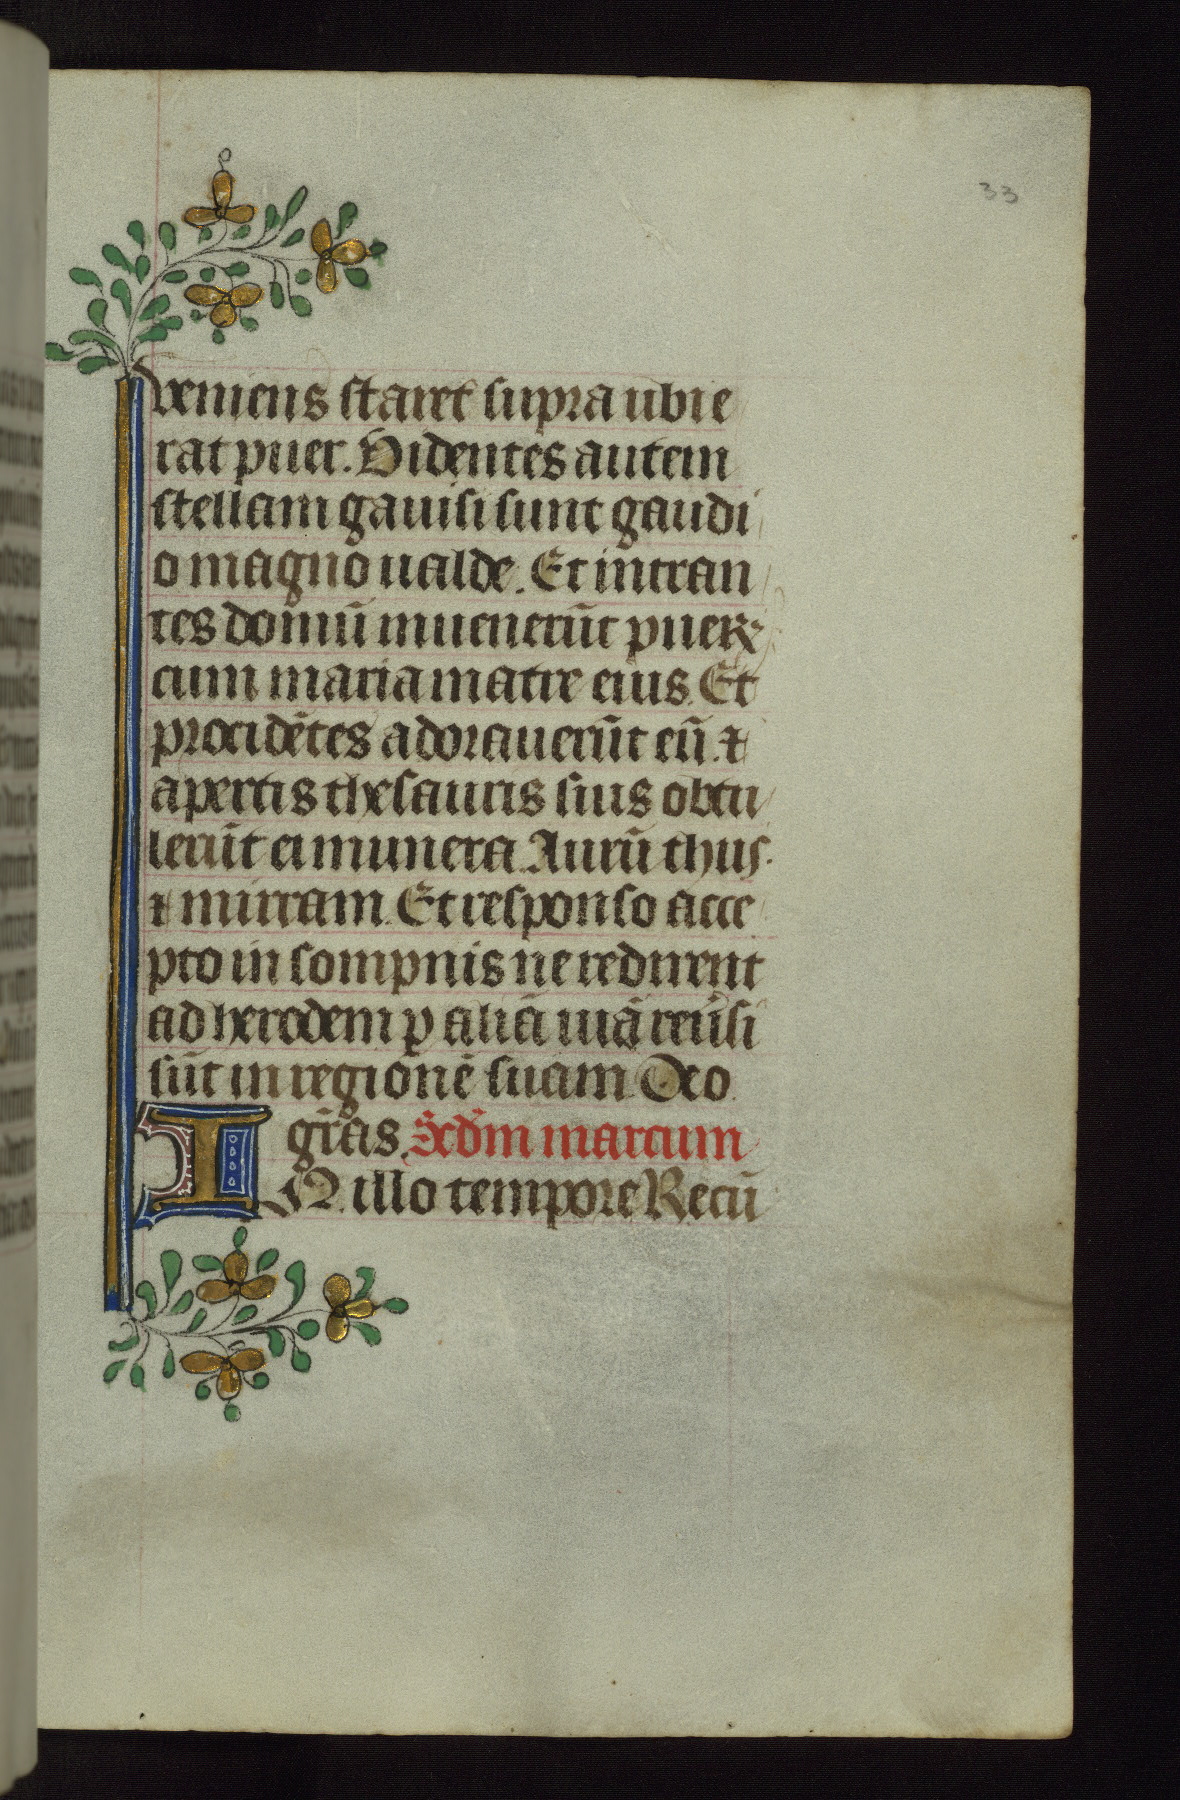 33
veniens staret supra ubi e
rat puer. Videntes autem
stellam gauisi sunt gaudi
o magno ualde. Et intran
tes domū inuenerūt puerꝝ
cum maria matre eius. Et
procidētes adorauerūt eū. ⁊
apertis thesauris suis obtu
lerūt ei munera. Aurū thus.
⁊ mirram. Et responso acce
pto in sompnis ne redirent
ad herodem ꝑ aliā uiā reūsi
sūt in regionē suam. Deo
gr̄as. Scd̄m marcum
IN illo tempore Recū